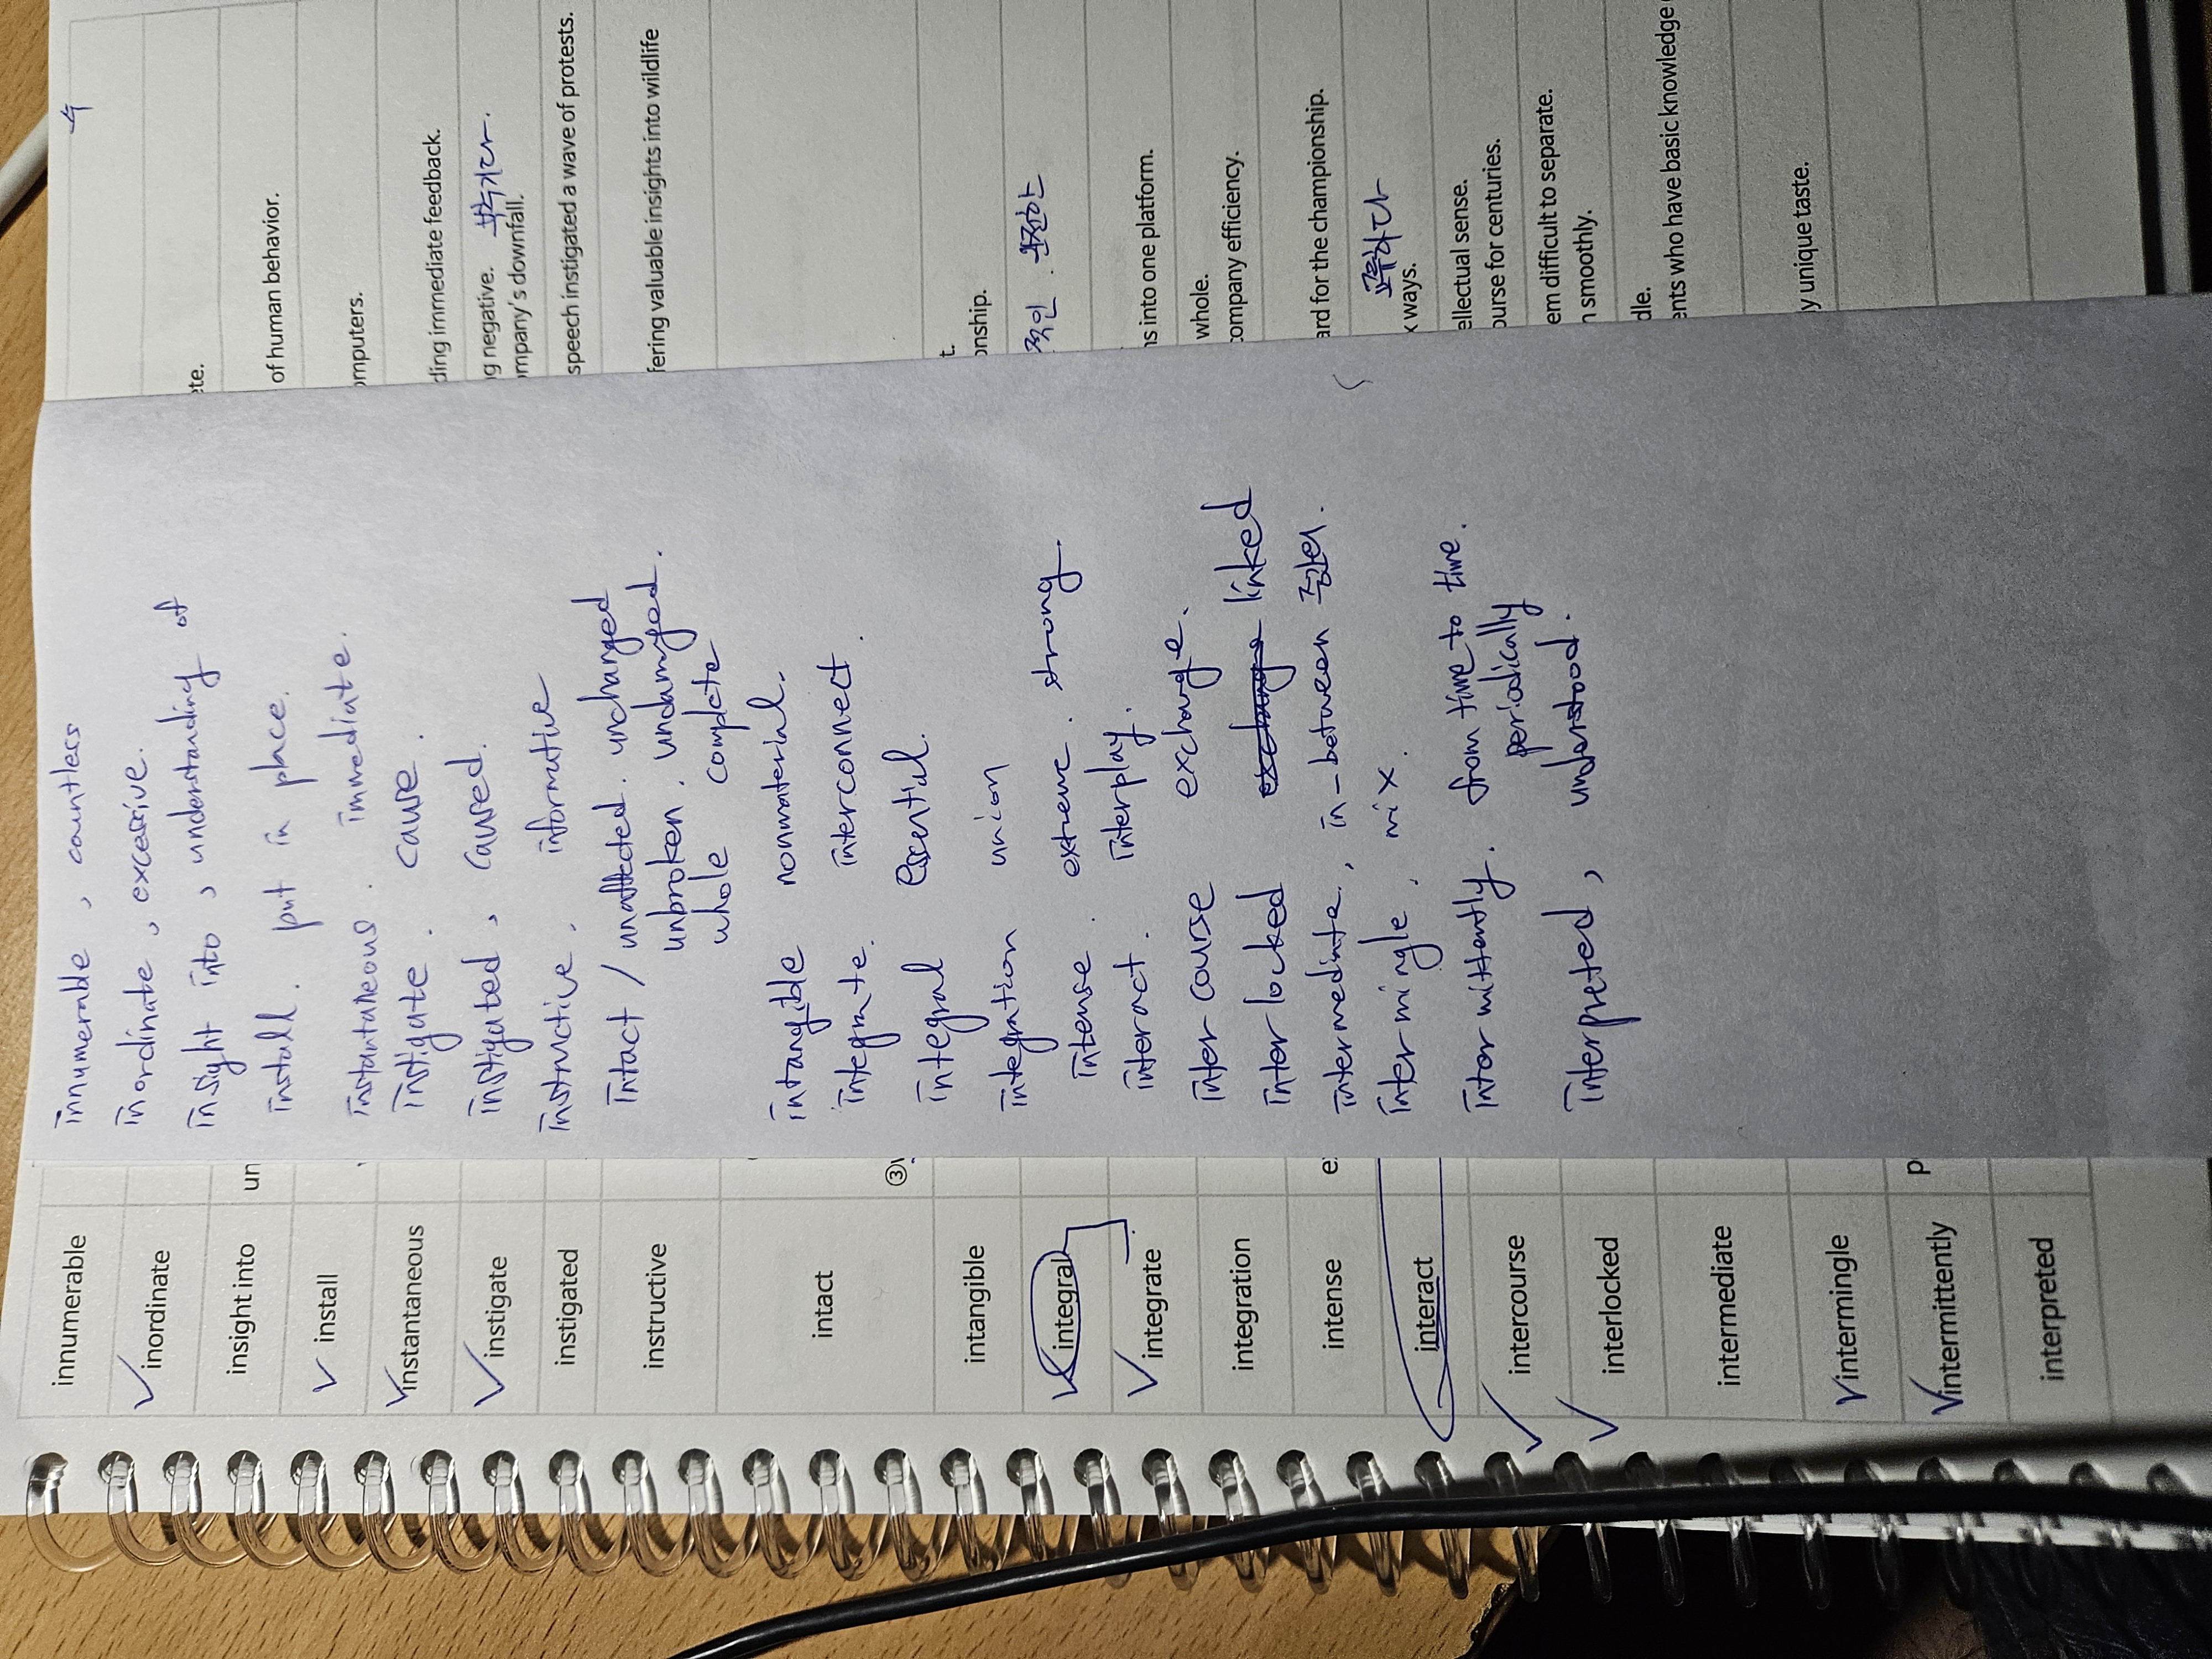 innumerable
inordinate
insight into
install
instantaneous
instigate
instigated
instructive
intact
intangible
integral
integrate
integration
intense
interact
intercourse
interlocked
intermediate
intermingle
intermittently
interpreted
un
③
e
p
innumerable , countless
inordinate , excessive.
insight into , understanding of
install. put in place.
instantaneous. immediate.
instigate. cause.
instigated, caused.
instructive, informative
intact / unaffected. unchanged
unbroken. undamaged.
whole complete
intangible nonmaterial.
integrate. interconnect.
integral essential.
integration union
intense. extreme. strong.
interact. interplay.
inter course exchange.
inter locked exchange linked
intermediate, in-between 중간의.
inter mingle, mix.
intermittently. from time to time.
periodically
interpreted, understood.
수
ete.
of human behavior.
omputers.
ding immediate feedback.
g negative. 부추기다.
ompany's downfall.
speech instigated a wave of protests.
fering valuable insights into wildlife
t.
onship.
적인. 완전한
ns into one platform.
whole.
company efficiency.
ard for the championship.
교류하다
x ways.
ellectual sense.
ourse for centuries.
em difficult to separate.
n smoothly.
dle.
ents who have basic knowledge
y unique taste.